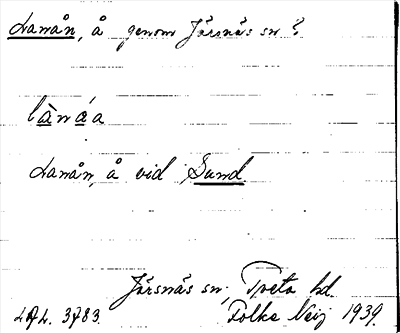 Lanån, å genom Järsnäs sn.
lànáa
Lanån, å vid Sund.
Järsnäs sn, Tveta hd.
LAL. 3783. Folke Neij 1939.